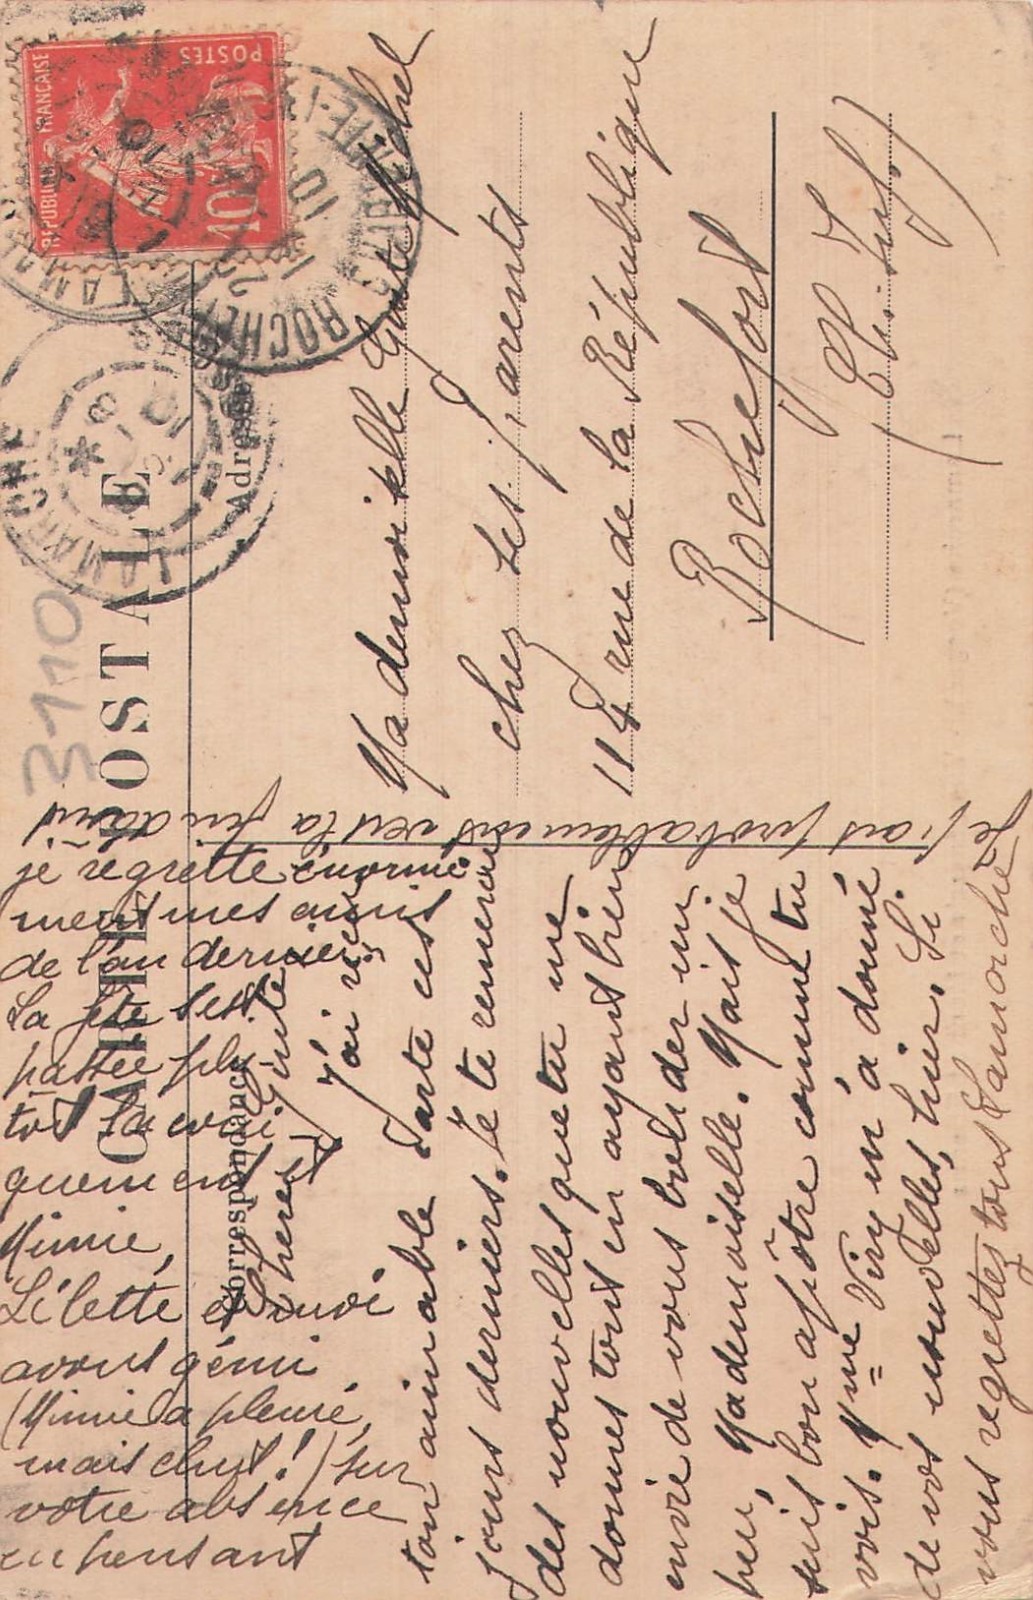 CARTE POSTALE
Correspondance
Adresse
RÉPUBLIQUE FRANÇAISE
POSTES
10
LAMARCHE
3110
Mademoiselle Guite Michel
chez ses parents
114 rue de la République
Rochefort
(Ch. Inf.)
Chère Guite
J'ai reçu
ton aimable carte ces
jours derniers. Je te remercie
des nouvelles que tu me
donnes tout en ayant bien
envie de vous bouder un
peu, Mademoiselle. Mais je
suis bon apôtre comme tu
vois. Mme Viry m'a donné
de vos nouvelles, hier. Si
vous regrettez tous Lamarche
je regrette énormé
ment mes amis
de l'an dernier.
La fête s'est
passée plu-
tôt laconi
quement et
Mimie,
Lilette et moi
avons gémi
(Mimie a pleuré,
mais chut!) sur
votre absence
en pensant
Je pars probablement vers la fin d'août